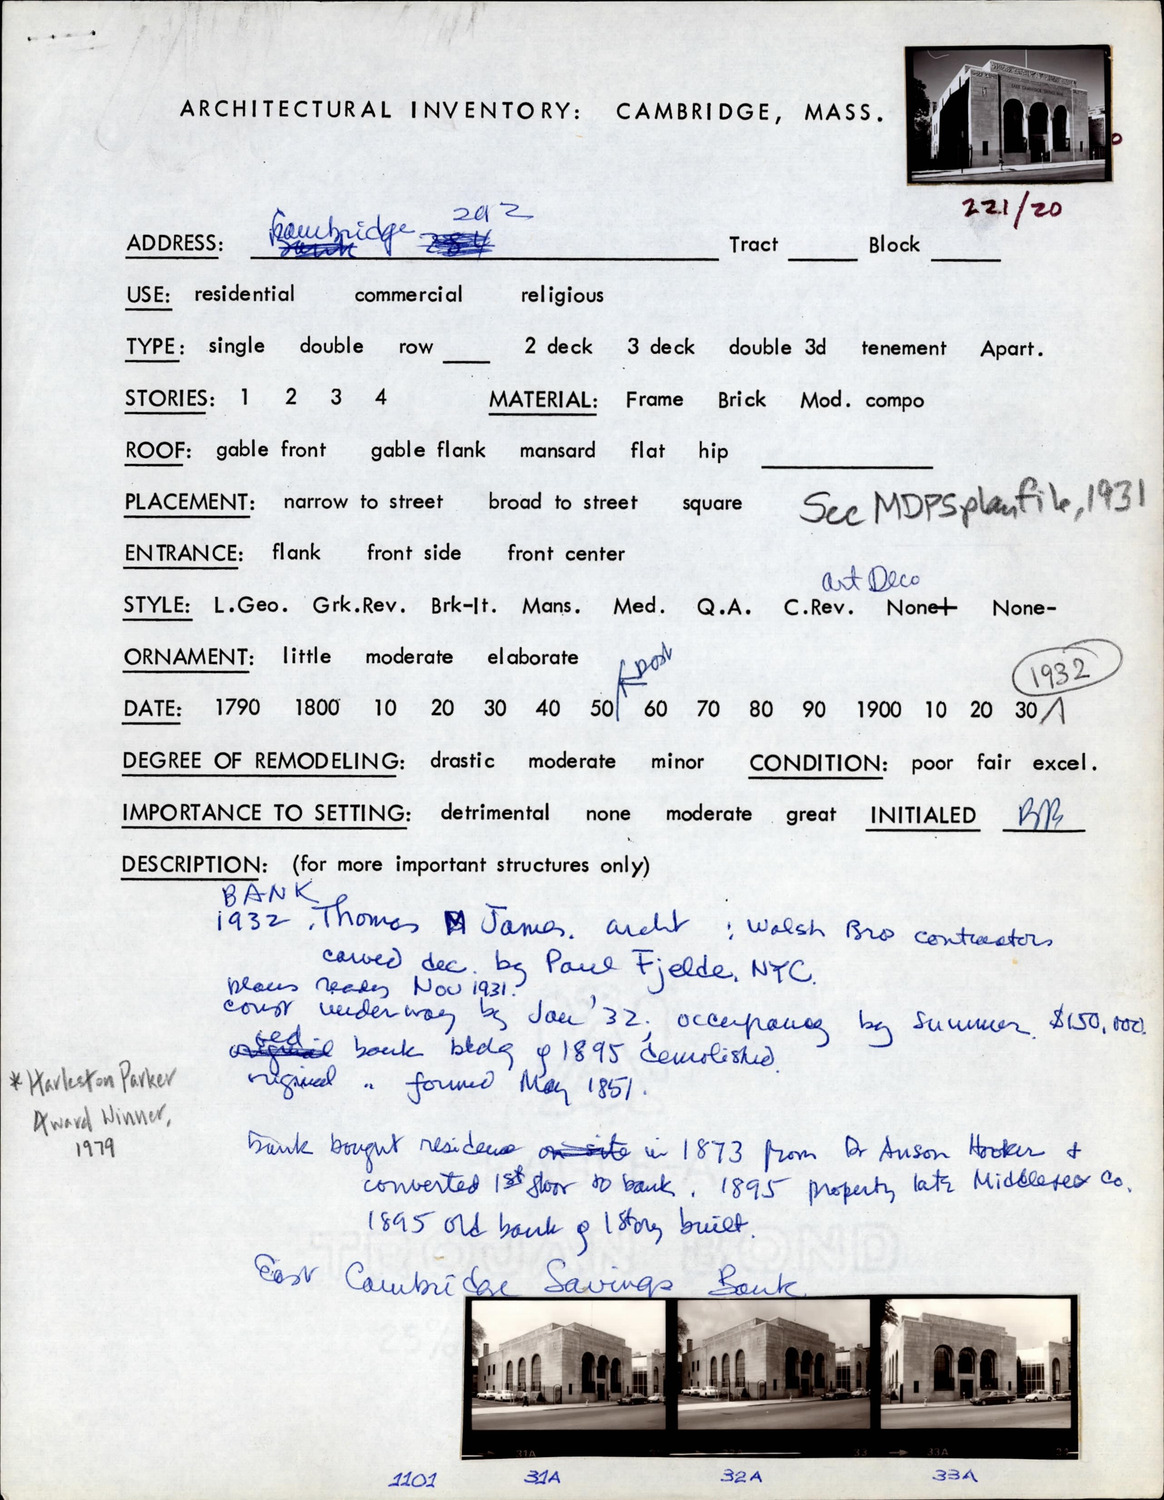 ARCHITECTURAL INVENTORY: CAMBRIDGE, MASS.
221/20
ADDRESS: Cambridge 292 Tract Block
USE: residential commercial religious
TYPE: single double row 2 deck 3 deck double 3d tenement Apart.
STORIES: 1 2 3 4 MATERIAL: Frame Brick Mod. compo
ROOF: gable front gable flank mansard flat hip
PLACEMENT: narrow to street broad to street square
See MDPS plan file, 1931
ENTRANCE: flank front side front center
art Deco
STYLE: L.Geo. Grk.Rev. Brk-It. Mans. Med. Q.A. C.Rev. None+ None-
ORNAMENT: little moderate elaborate
post
1932
DATE: 1790 1800 10 20 30 40 50 60 70 80 90 1900 10 20 30
DEGREE OF REMODELING: drastic moderate minor CONDITION: poor fair excel.
IMPORTANCE TO SETTING: detrimental none moderate great INITIALED BRB
DESCRIPTION: (for more important structures only)
BANK
1932, Thomas M James. archt ; Walsh Bros contractors
carved dec. by Paul Fjelde, NYC.
plans ready Nov 1931.
const underway by Jan '32; occupancy by summer. $150,000.
bank bldg of 1895 demolished.
original " formed May 1851.
* Harleston Parker
Award Winner,
1979
bank bought residence on site in 1873 from Dr Anson Hooker +
converted 1st floor to bank. 1895 property late Middlesex Co.
1895 old bank of 1 story built.
East Cambridge Savings Bank
31A 33 33A
1101 31A 32A 33A